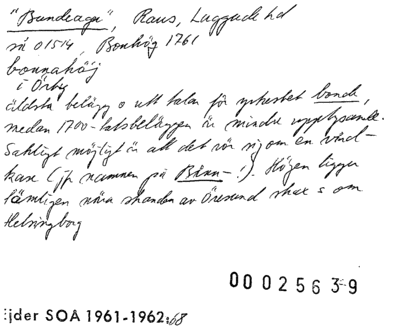 "Bundeaga", Raus, Luggude hd
säi 01514, Bonhög 1761
bonnahöj
i Örby
äldsta belägg o utt talar för yrkesbet bonde,
medan 1700-talsbeläggen är mindre upplysande.
Sakligt möjligt är att det rör sig om en vård-
kase (jfr namnen på Bånn- !). Högen ligger
tämligen nära stranden av Öresund strax s om
Helsingborg
000256 3-9
ejder SOA 1961-1962:68